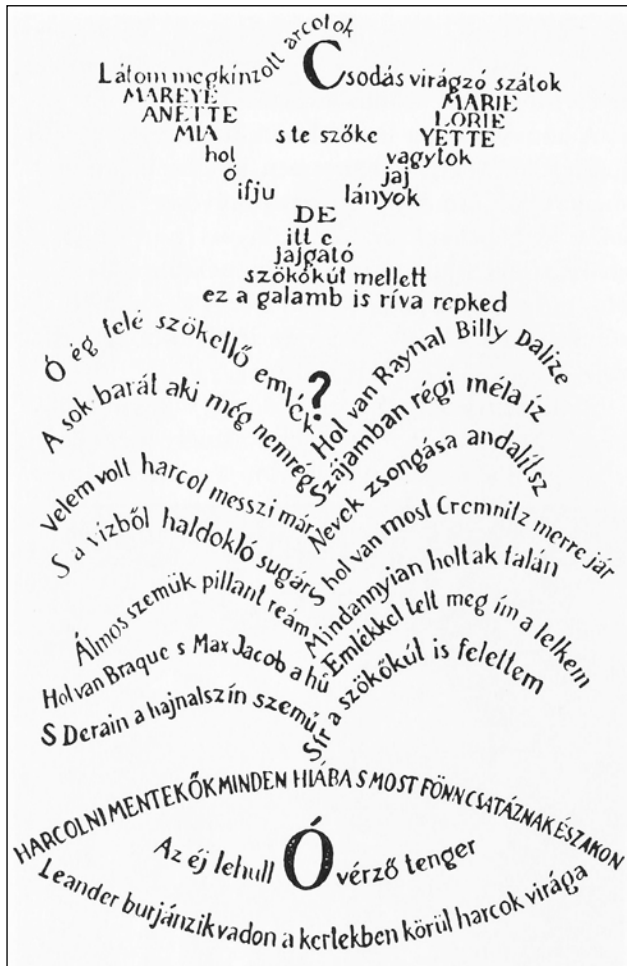 Látom megkínzott arcotok
Csodás virágzó szátok
MAREYE
MARIE
ANETTE
LORIE
MIA
s te szőke
YETTE
hol
vagytok
ó
jaj
ifju
lányok
DE
itt e
jajgató
szökőkút mellett
ez a galamb is ríva repked
Ó ég felé szökellő emlék
?
A sok barát aki még nemrég
Velem volt harcol messzi már
S a vízből haldokló sugár
Álmos szemük pillant reám
Hol van Braque s Max Jacob a hű
S Derain a hajnalszín szemű
Hol van Raynal Billy Dalize
Szájamban régi méla íz
Nevek zsongása andalítsz
S hol van most Cremnitz merre jár
Mindannyian holtak talán
Emlékkel telt meg ím a lelkem
Sír a szökőkút is felettem
HARCOLNI MENTEK ŐK MINDEN HIÁBA S MOST FÖNN CSATÁZNAK ÉSZAKON
Az éj lehull Ó vérző tenger
Leander burjánzik vadon a kertekben körül harcok virága